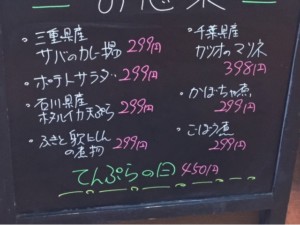 三重県産
サバのカレー揚 299円
ポテトサラダ 299円
石川県産
ホタルイカ天ぷら 299円
ふきと身欠にしん
の煮物 299円
千葉県産
カツオのマリネ
398円
かぼちゃ煮
299円
ごぼう煮
299円
てんぷらの日 450円